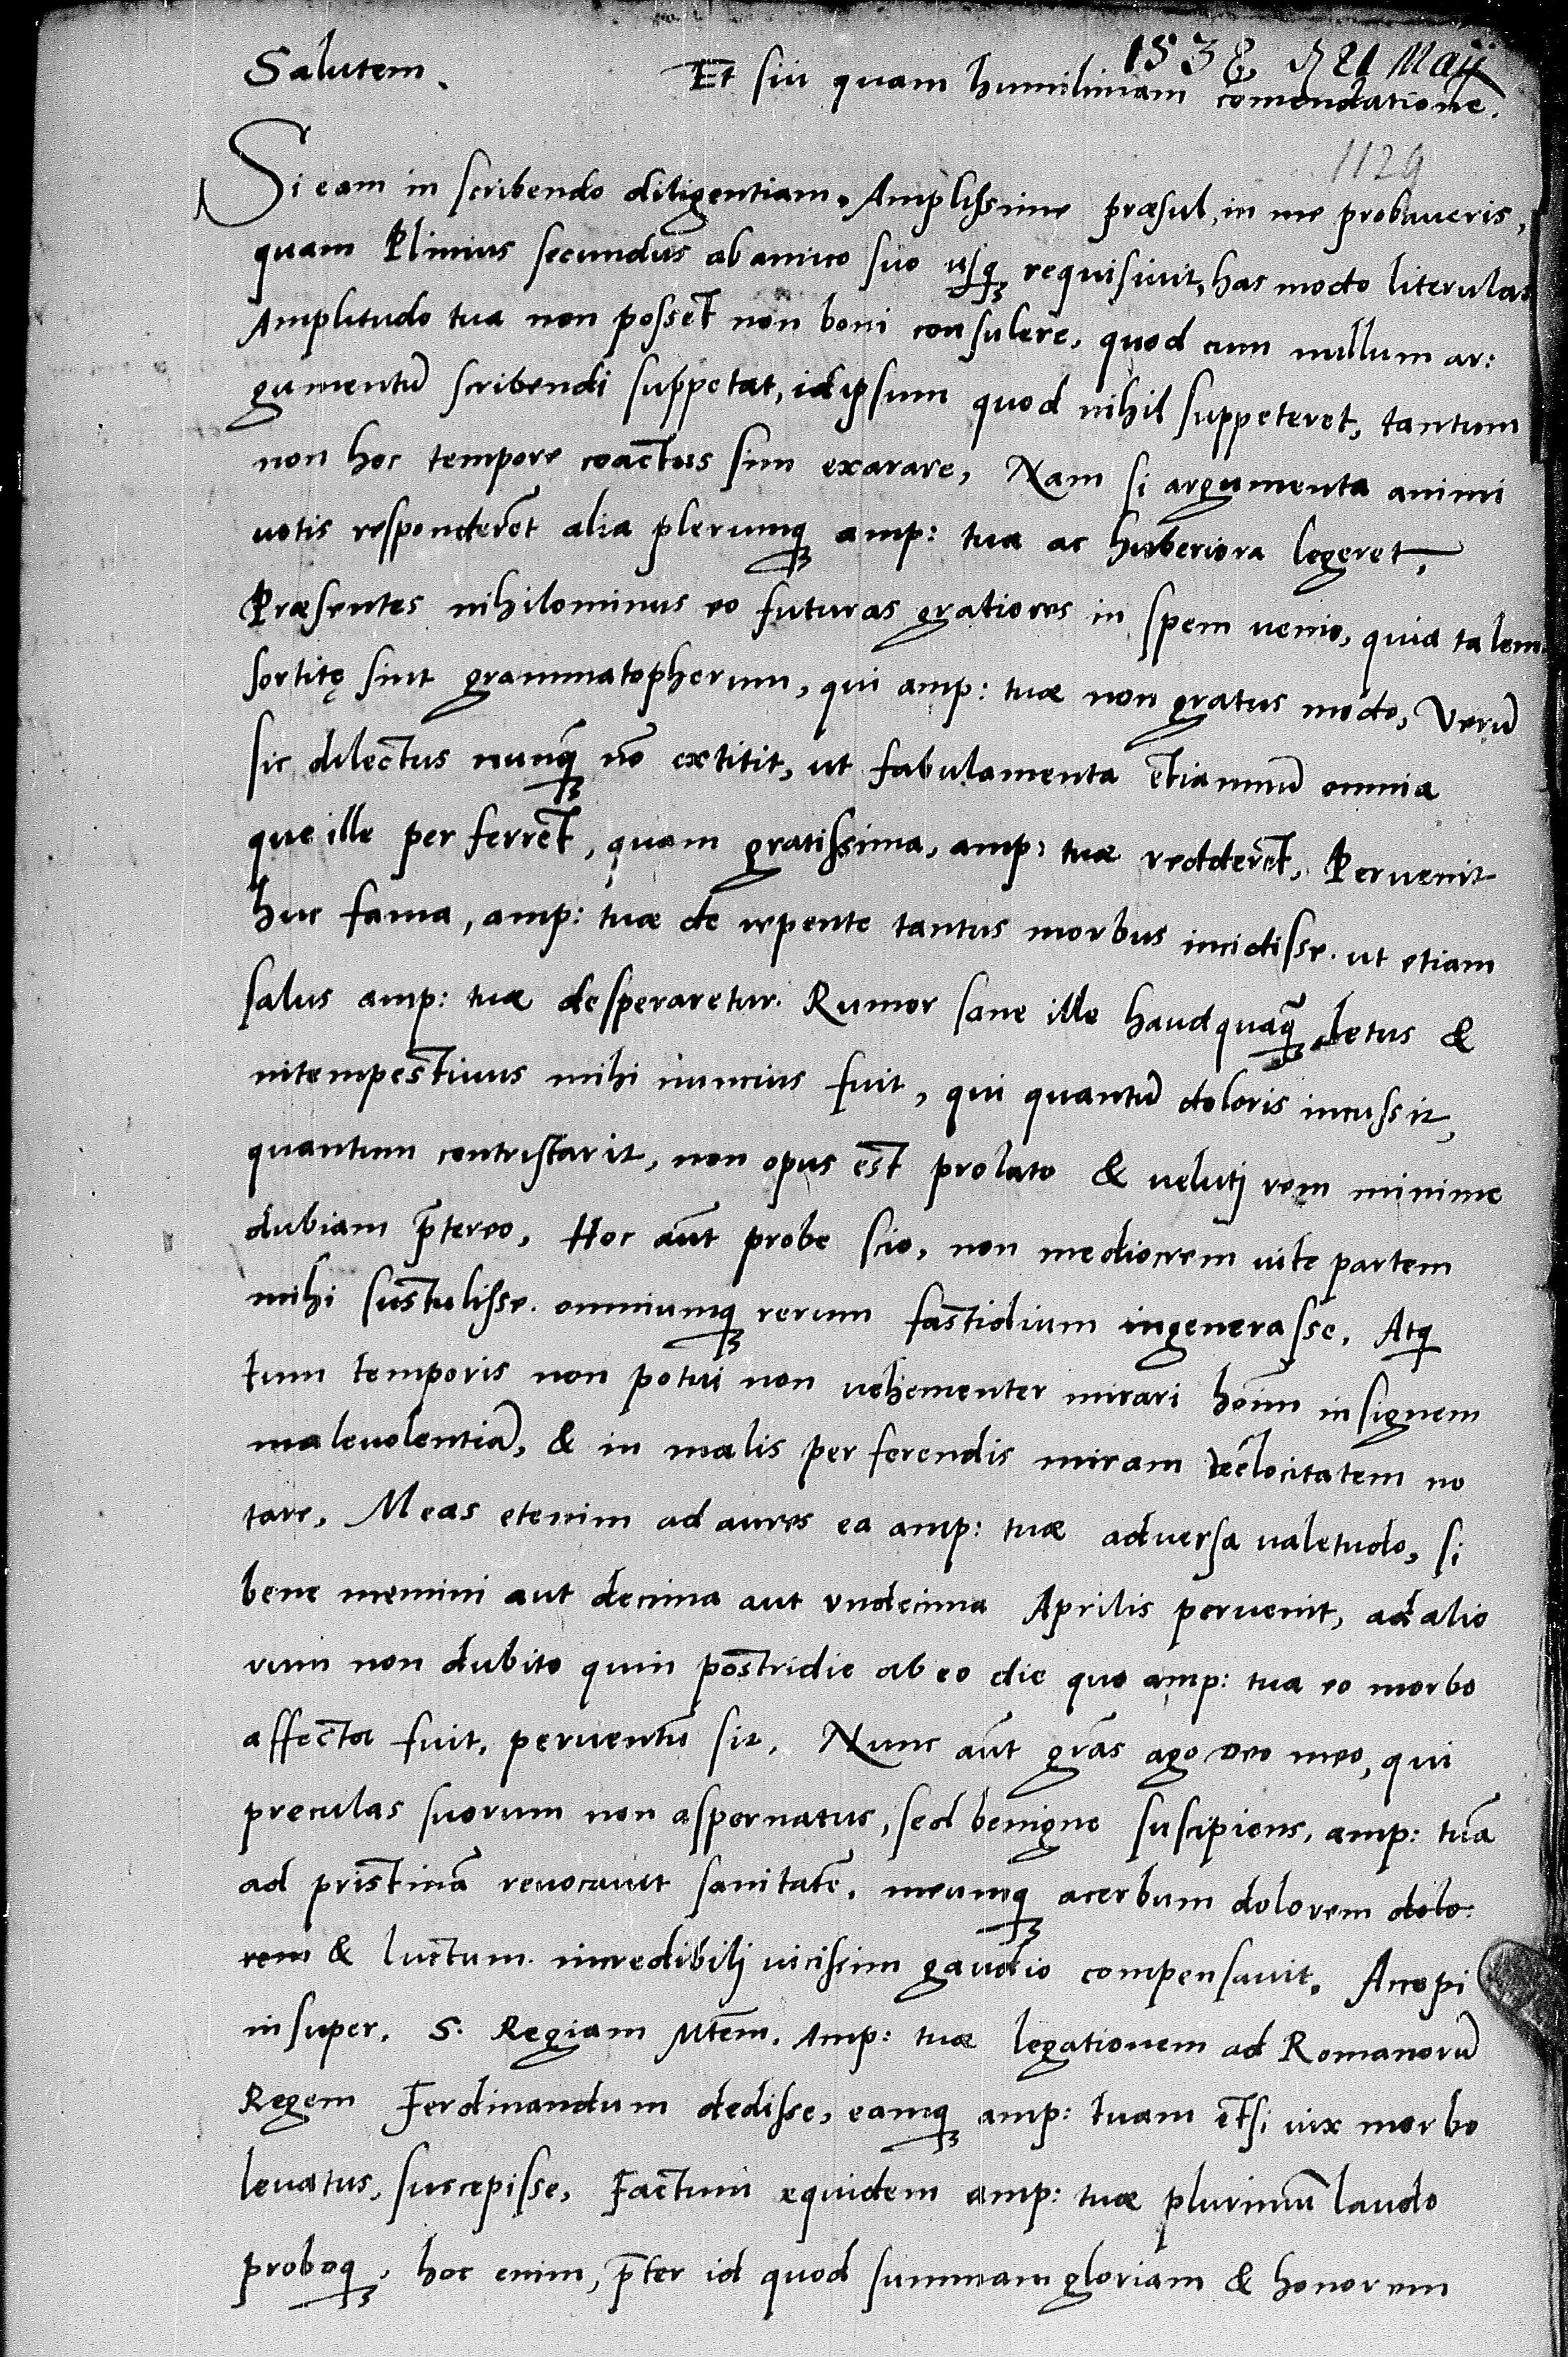 1538 21 Maij
Salutem. Et sui quam humilimam comendationē.
1129
Si eam in scribendo diligentiam, Amplissime præsul, in me probaueris,
quam Plinius secundus ab amico suo usq₃ requisiuit, has modo literulas
Amplitudo tua non posset non boni consulere, quod cum nullum ar:
gumentū scribendi suppetat, id ipsum quod nihil suppeteret, tantum
non hoc tempore coactus sim exarare, Nam si argumenta animi
uotis responderēt alia plerumq₃ amp: tua ac huberiora legeret,
Præsentes nihilominus eo futuras gratiores in spem uenio, quia talem
sortitę sint grammatophorum, qui amp: tuæ non gratus modo, Verū
sic dilectus nunq̄₃ nō extitit, ut fabulamenta etiamnū omnia
que ille perferret, quam gratissima, amp: tuæ redderēt, Peruenit
huc fama, amp: tuæ de repente tantus morbus incidisse. ut etiam
salus amp: tuæ desperaretur. Rumor sane ille haudquaq̄₃ letus &
intempestiuus mihi nuncius fuit, qui quantū doloris incussit,
quantum contristarit, non opus est prolato & uelutj rem minime
dubiam p̄tereo, Hoc aūt probe scio, non mediocrem uite partem
mihi sustulisse. omniumq₃ rerum fastidium ingenerasse, Atq₃
tum temporis non potui non uehementer mirari hoīm insignem
maleuolentiā, & in malis perferendis miram uelocitatem no
tare, Meas etenim ad aures ea amp: tuæ aduersa ualetudo, si
bene memini aut decima aut vndecima Aprilis peruenit, ad alio
rum non dubito quin postridie ab eo die quo amp: tua eo morbo
affecta fuit, peruentū sit, Nunc aūt grās ago deo meo, qui
preculas suorum non aspernatus, sed benigne suscipiens, amp: tuā
ad pristinā reuocauit sanitatē, meumq₃ acerbum dolorem dolo
rem & luctum incredibilj uicissim gaudio compensauit. Accepi
insuper, S. Regiam Mtēm. Amp: tuæ legationem ad Romanorū
Regem Ferdinandum dedisse, eamq₃ amp: tuam etsi uix morbo
leuatus, suscepisse, Factum equidem amp: tuæ plurimū laudo
proboq₃, hoc enim, p̄ter id quod summam gloriam & honorem